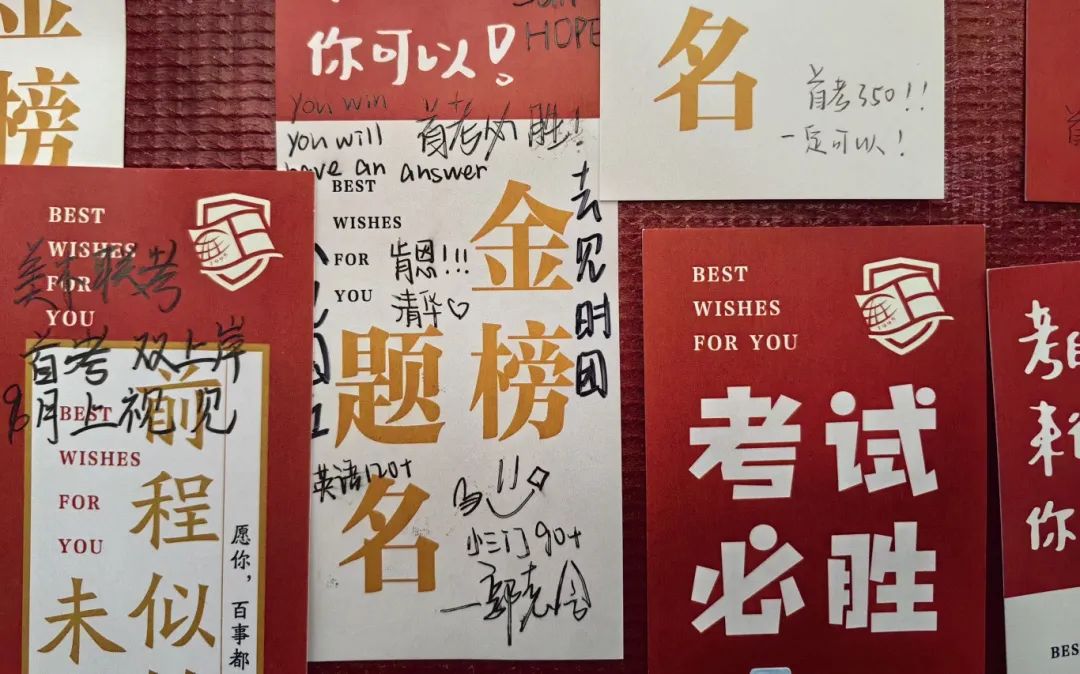 榜
你可以!
HOPE
you win
you will
have an answer
首考必胜!
BEST
WISHES
FOR
YOU
肯恩!!!
清华♡
去见时团
金榜
题
名
英语120+
小三门90+
名
首考350!!
一定可以!
BEST
WISHES
FOR
YOU
美术联考
首考 双上岸
9月上视见
BEST
WISHES
FOR
YOU
前程似
未
愿你，百事都
BEST
WISHES
FOR YOU
考试
必胜
考
来
你
BES